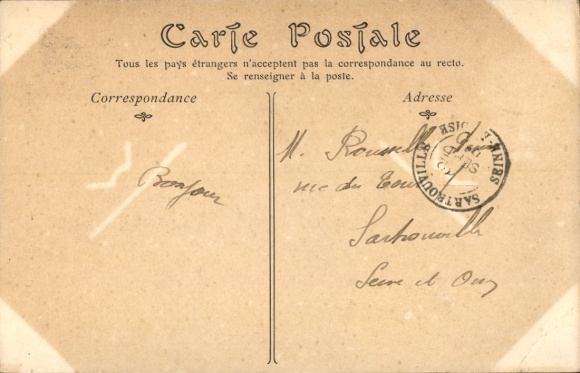 Carte Postale
Tous les pays étrangers n'acceptent pas la correspondance au recto.
Se renseigner à la poste.
Correspondance
Adresse
Bonjour
M. Rousselle
rue du
Sartrouville
Seine et Oise
SARTROUVILLE
SEINE-ET-OISE